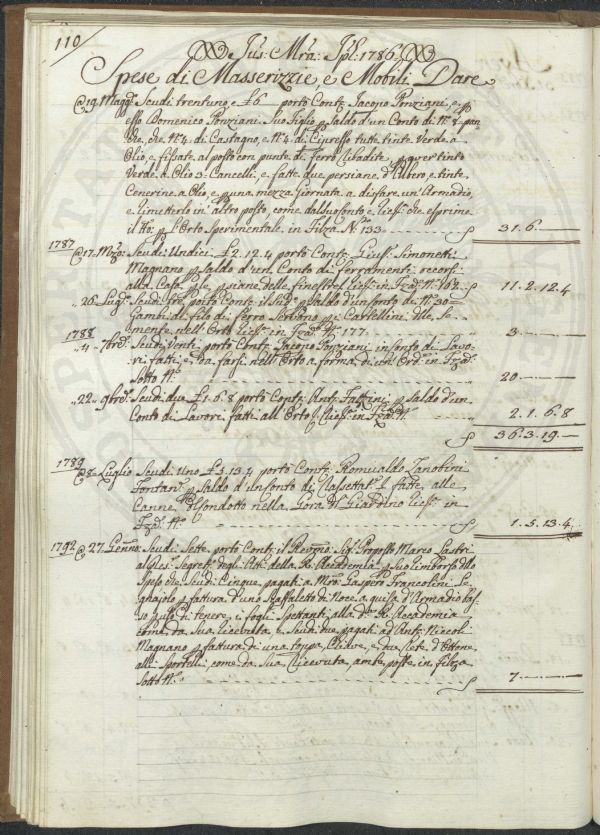 110
Jus: Mra: Jpl: 1786.
Spese di Masserizzie, e Mobili Dare
@ 19. Magg.o Scudi trentuno, e £6 porto Cont.i Jacopo Ponziani, e p esso
esso Domenico Ponziani Suo Figlio p Saldo d'un Conto di N.o 8. pan
che, che N.o 4. di Castagno, e N.o 4. di Cipresso tutte tinte Verde a
Olio, e fissate al posto con punte di ferro ribadite, p aver tinto
Verde a Olio 3. Cancelli, e fatte due persiane d'Albero, e tinte
Cenerine a Olio, e p una mezza Giornata a disfare un' Armadio,
e rimetterlo in altro posto, come dal suo Conto, e Ricev. che esprime
il tto: p l'Orto Sperimentale in Filza N.o 133 31. 6. —
1787
@ 17. Mzo: Scudi Undici £2. 12. 4 porto Cont.i Gius. Simonetti
Magnano p Saldo d'un Conto di ferramenti recorsi
alla Casa, e p le piane delle finestre, Ricev. in Fza. N.o 164. 11. 2. 12. 4
" 26. Lug.o Scudi tre porto Cont.i il sud.o p Saldo d'un Conto di N.o 30
Gambi di filo di ferro Servono pi Cartellini delle Se
mente nell'Orto Ricev. in Fza. N.o 177. 3 —
1788
" 4. 7bre. Scudi Venti porto Cont.i Jacopo Ponziani in Conto di Lavo
ri fatti, e da farsi nell'Orto a forma di un' Ord.e in Fza.
Sotto N.o 20 —
" 22. 9bre. Scudi due £1. 6. 8 porto Cont.i Ant.o Fattini p Saldo d'un
Conto di Lavori fatti all'Orto, Ricev. in Fza. N.o 2. 1. 6. 8
36. 3. 19. —
1789
@ 8. Luglio Scudi Uno £5. 13. 4 porto Cont.i Romualdo Zanobini
Fontan.e p Saldo d'un Conto di Rassettat.e fatte alle
Canne del Condotto nella Gora del Giardino Ricev. in
Fza. N.o 1. 5. 13. 4
1792 @ 27. Genn.o: Scudi Sette porto Cont.i il Rev.mo Sig. Proposto Marco Lastri
Segret. degli Atti della R. Accademia p Suo rimborso dello
Speso che Scudi Cinque pagati a Mro. Gaspero Francolini Le
gnajolo p fattura d'uno Scaffaletto di Noce a guisa d'Armadio
p uso di tenere i fogli Spettanti alla d.a R. Accademia
come da Sua ricevuta e Scudi due pagati ad Ant.o Niccoli
Magnano p fattura di una toppa Chiave, e due Rete d'Ottone
alli Sportelli come da Sua Ricevuta, ambe poste in filza
Sotto N.o 7 —